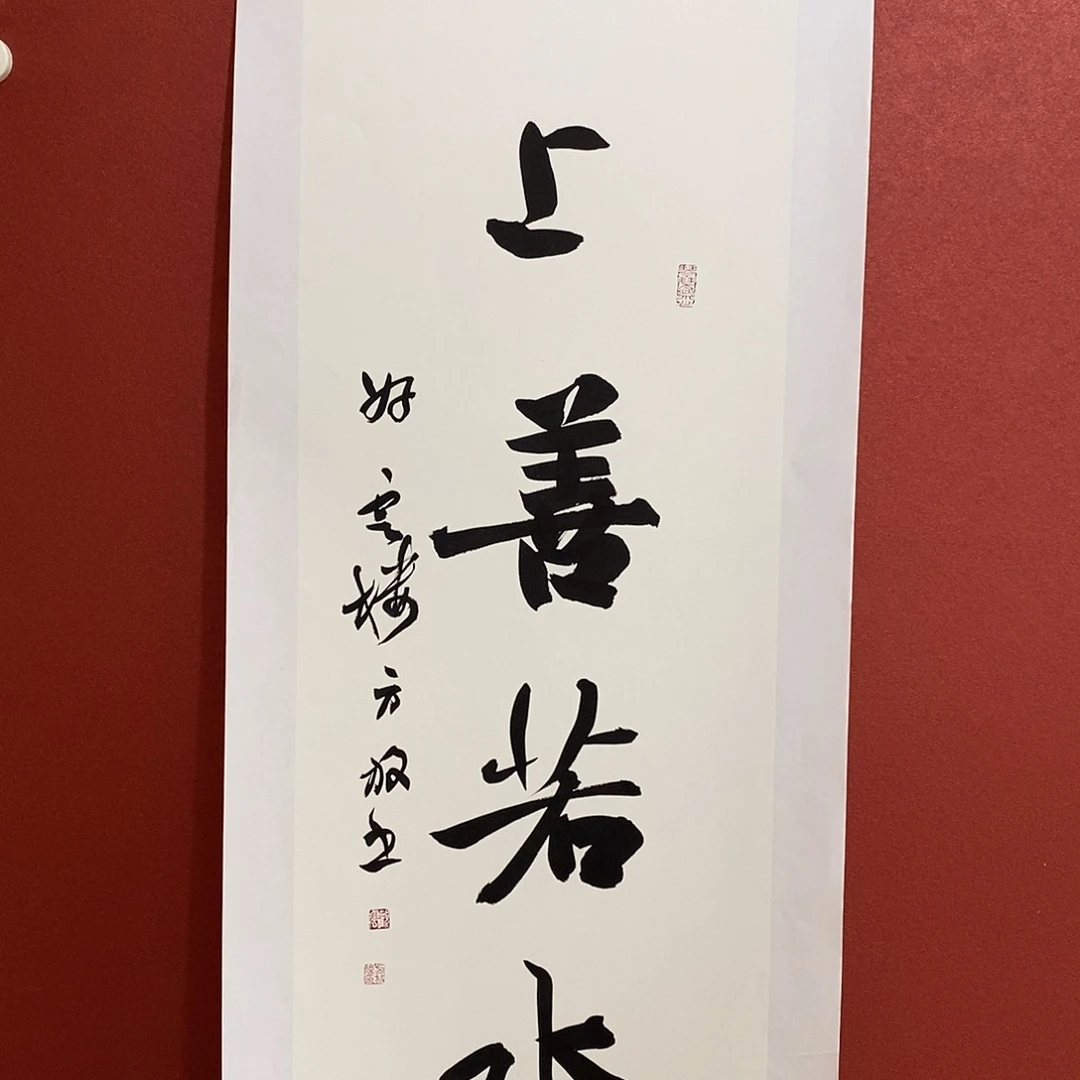 上善若水
好云楼方放书